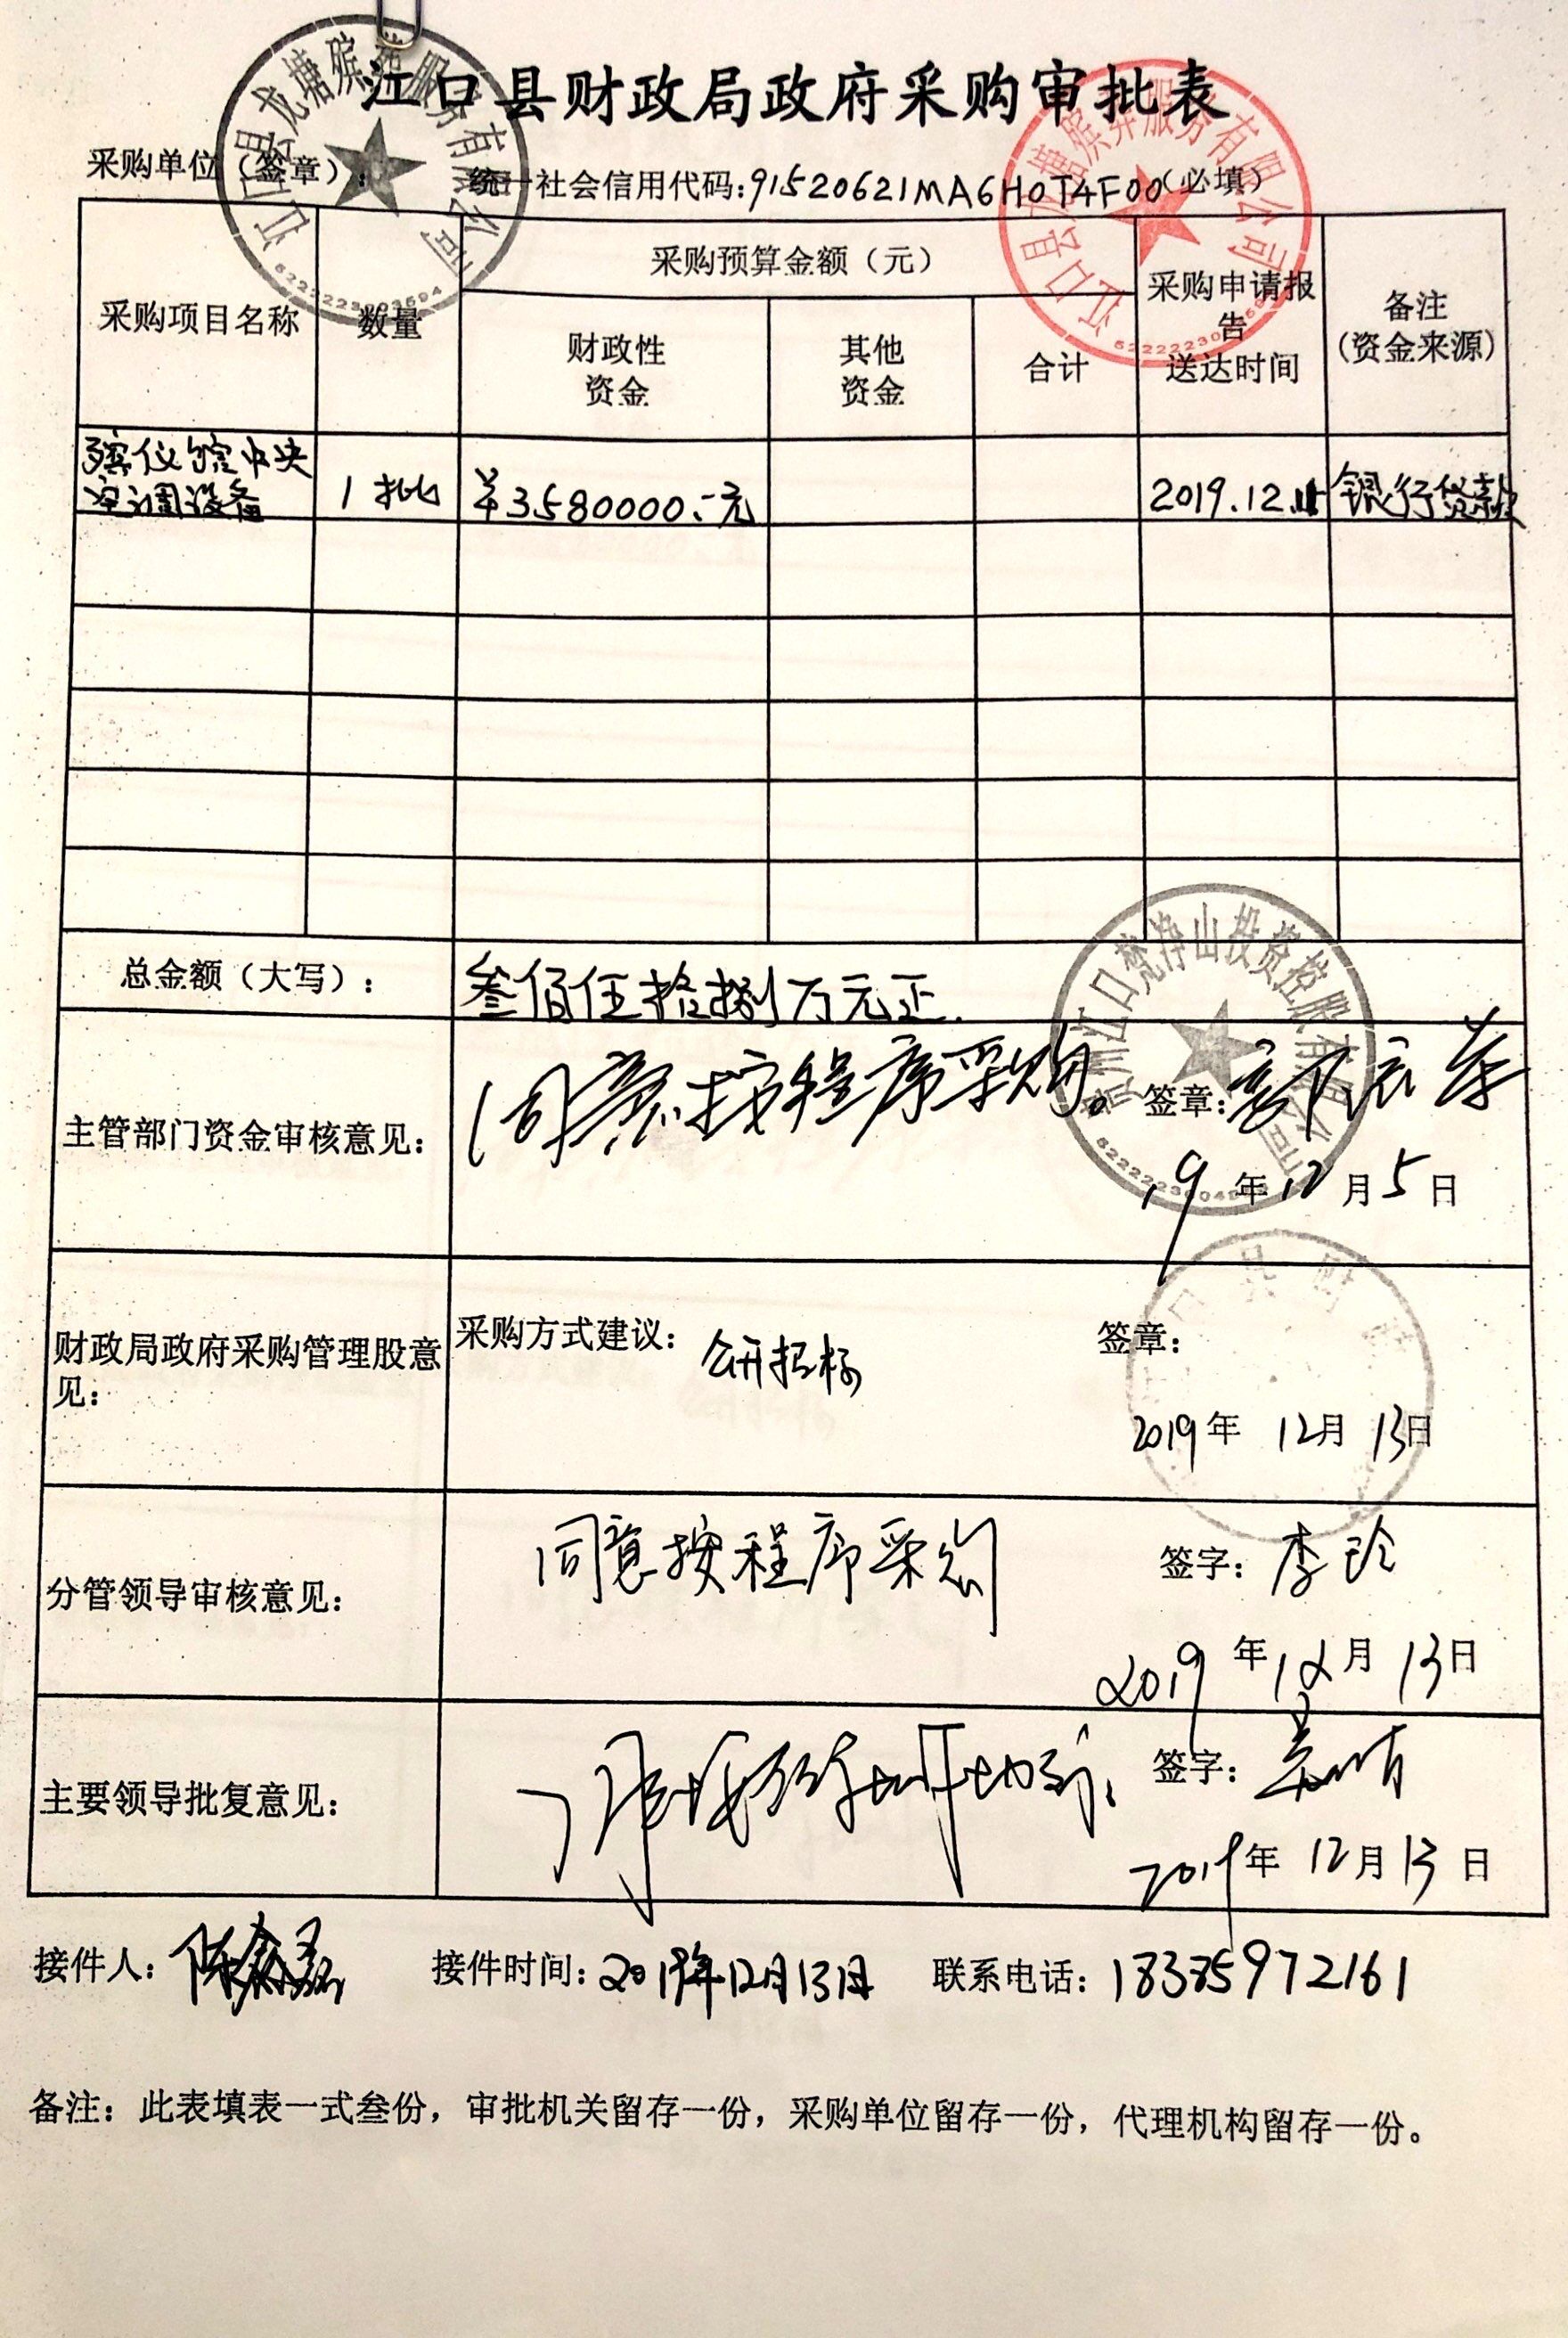 江口县财政局政府采购审批表
江口县龙塘殡葬服务有限公司
江口县龙塘殡葬服务有限公司
采购单位（签章）： 统一社会信用代码:91520621MA6H0T4F00（必填）
采购项目名称 数量 采购预算金额（元） 采购申请报告送达时间 备注（资金来源）
财政性资金 其他资金 合计
殡仪馆中央空调设备 1批 ¥3580000.-元 2019.12.11 银行贷款
总金额（大写）： 叁佰伍拾捌万元正.
贵州江口梵净山投资控股有限公司
主管部门资金审核意见： 同意按程序采购。 签章：
19年12月5日
财政局政府采购管理股意见： 采购方式建议： 公开招标 签章：
2019年 12月 13日
分管领导审核意见： 同意按程序采购 签字： 李玲
2019年12月13日
主要领导批复意见： 签字：
2019年12月13日
接件人： 接件时间：2019年12月13日 联系电话：18385972161
备注：此表填表一式叁份，审批机关留存一份，采购单位留存一份，代理机构留存一份。